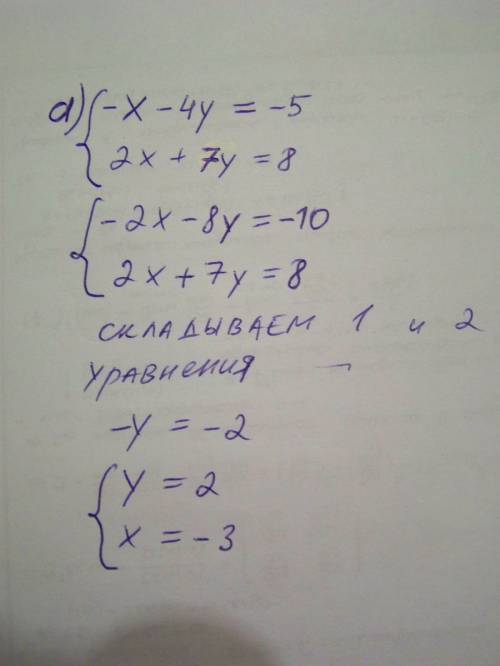 а) { -x - 4y = -5
2x + 7y = 8
{ -2x - 8y = -10
2x + 7y = 8
складываем 1 и 2
уравнения
-y = -2
{ y = 2
x = -3